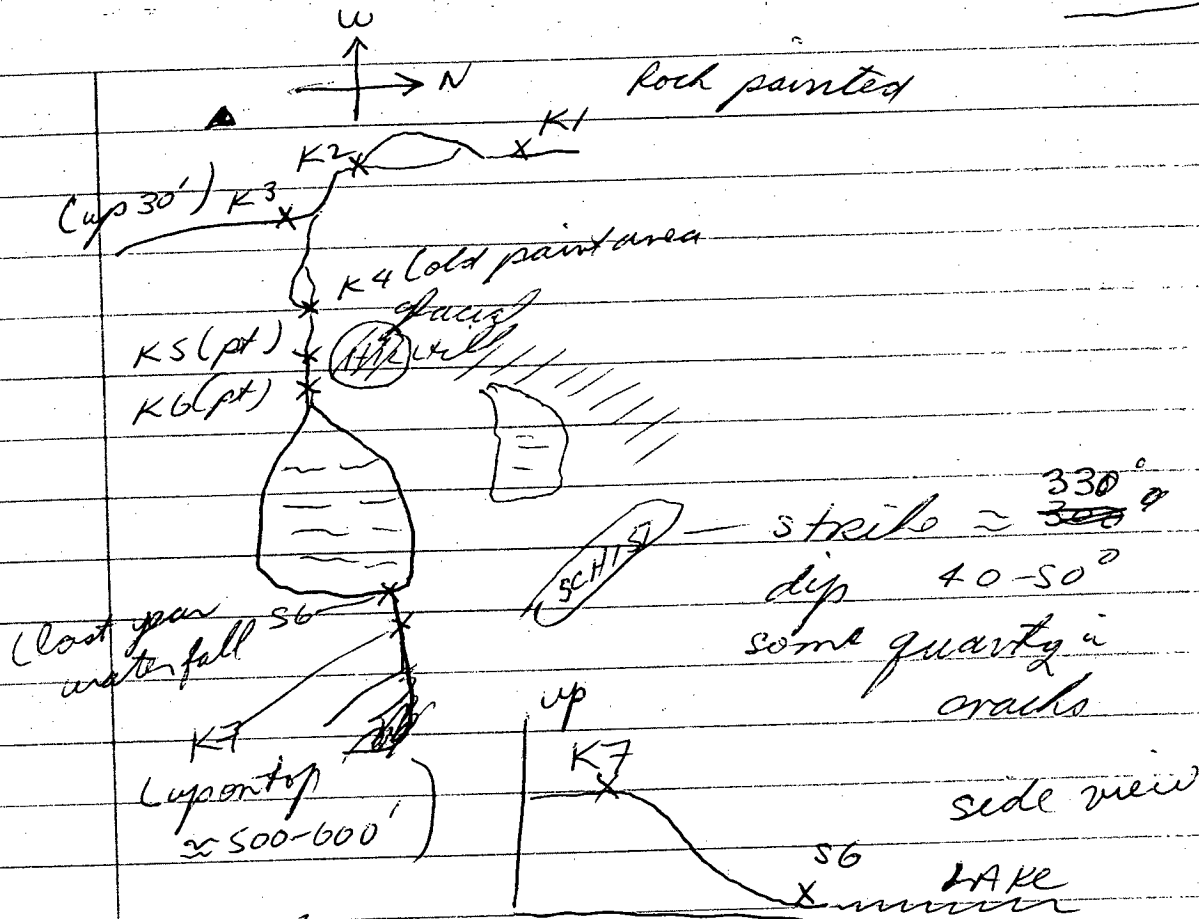 W
N
Rock painted
K1
K2
(up 30') K3
K4 (old paint area
glacial
till
K5 (pt)
K6 (pt)
330°
SCHIST — strike ≈ 300°
dip 40-50°
some quartz in
cracks
(last year S6
waterfall
K7
(up on top
≈ 500-600' )
up
K7
side view
S6
LAKE